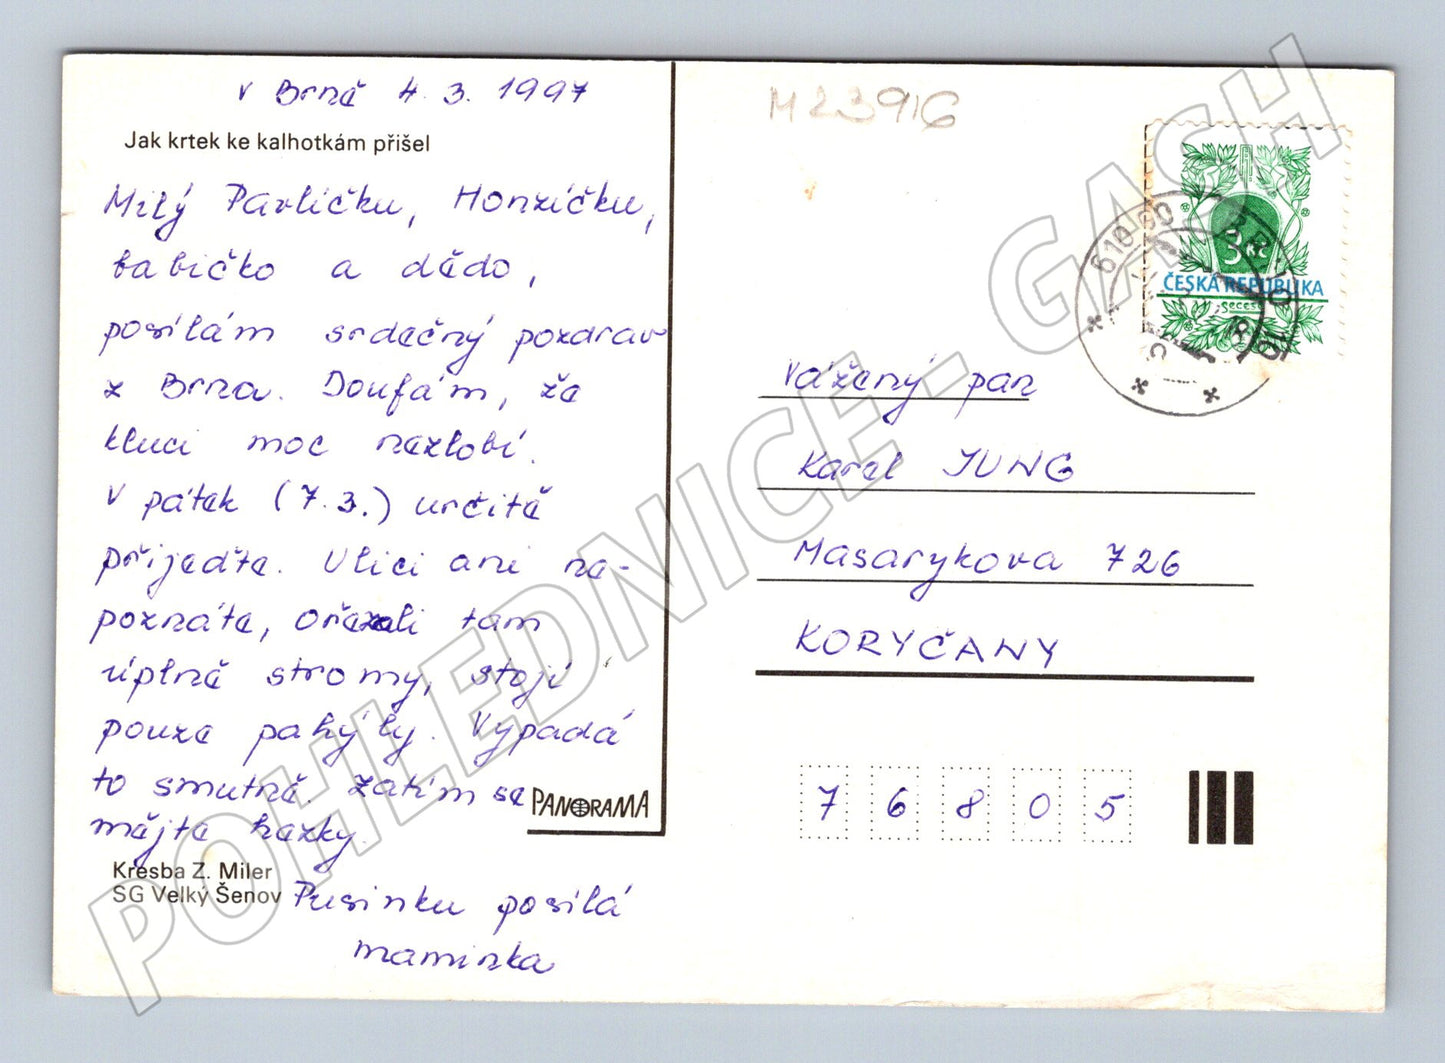 v Brně 4. 3. 1997
Jak krtek ke kalhotkám přišel
Milý Pavlíčku, Honzíčku,
babičko a dědo,
posílám srdečný pozdrav
z Brna. Doufám, že
kluci moc nezlobí.
V pátek (7.3.) určitě
přijeďte. Ulici ani ne-
poznáte, ořezali tam
úplně stromy, stojí
pouze pahýly. Vypadá
to smutně. Zatím se
mějte hezky
Kresba Z. Miler
SG Velký Šenov
Pusinku posílá
maminka
PANORAMA
M 23916
3 Kč
ČESKÁ REPUBLIKA
Secese
Vážený pan
Karel JUNG
Masarykova 726
KORYČANY
7 6 8 0 5
POHLEDNICE - GASH